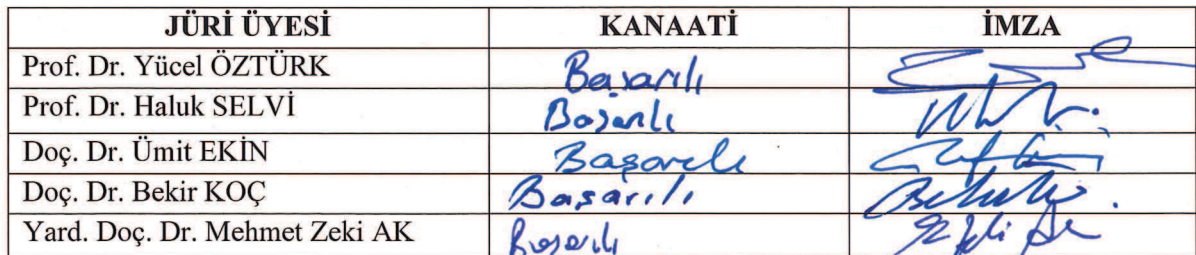 JÜRİ ÜYESİ KANAATİ İMZA
Prof. Dr. Yücel ÖZTÜRK Başarılı
Prof. Dr. Haluk SELVİ Başarılı
Doç. Dr. Ümit EKİN Başarılı
Doç. Dr. Bekir KOÇ Başarılı
Yard. Doç. Dr. Mehmet Zeki AK Başarılı